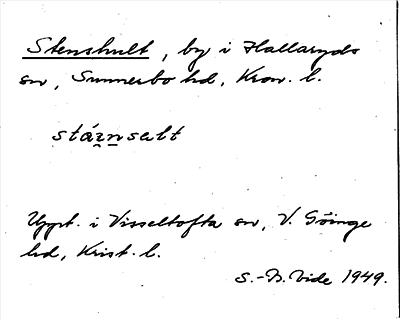 Stenshult, by i Hallaryds
sn, Sunnerbo hd, Kron. l.
stá̤rn̲sęlt
Uppt. i Visseltofta sn, V. Göinge
hd, Krist. l.
S.-B. Vide 1949.